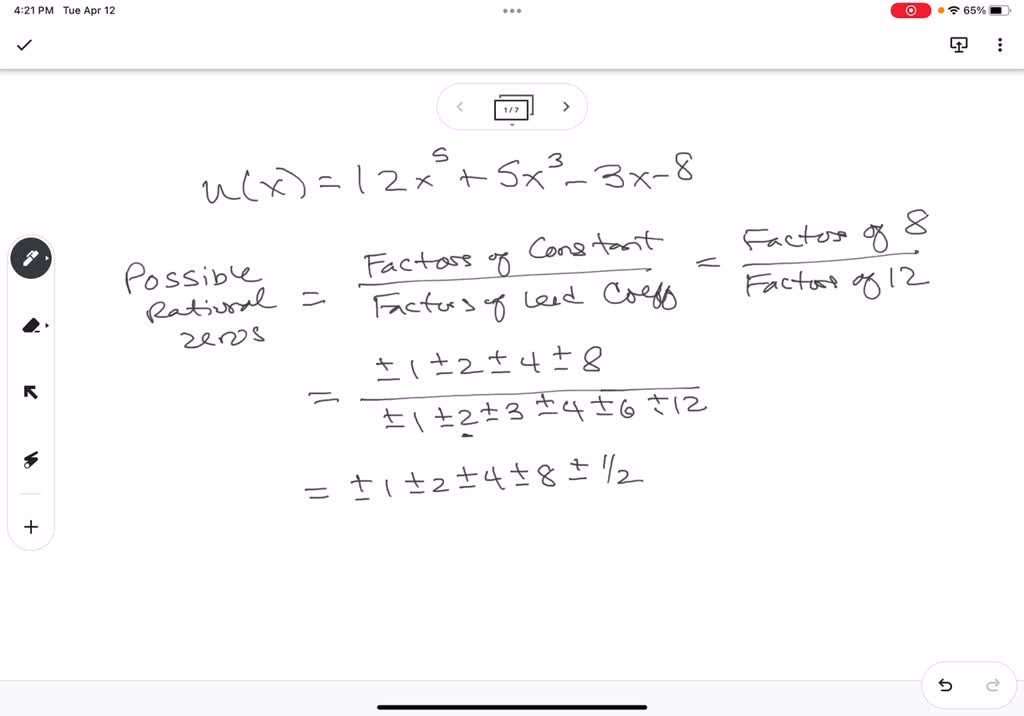 4:21 PM Tue Apr 12
65%
1/7
u(x) = 12x⁵ + 5x³ - 3x - 8
Possible Rational zeros = Factors of Constant / Factors of Lead Coeff = Factors of 8 / Factors of 12
= ±1 ±2 ±4 ±8 / ±1 ±2 ±3 ±4 ±6 ±12
= ±1 ±2 ±4 ±8 ± 1/2